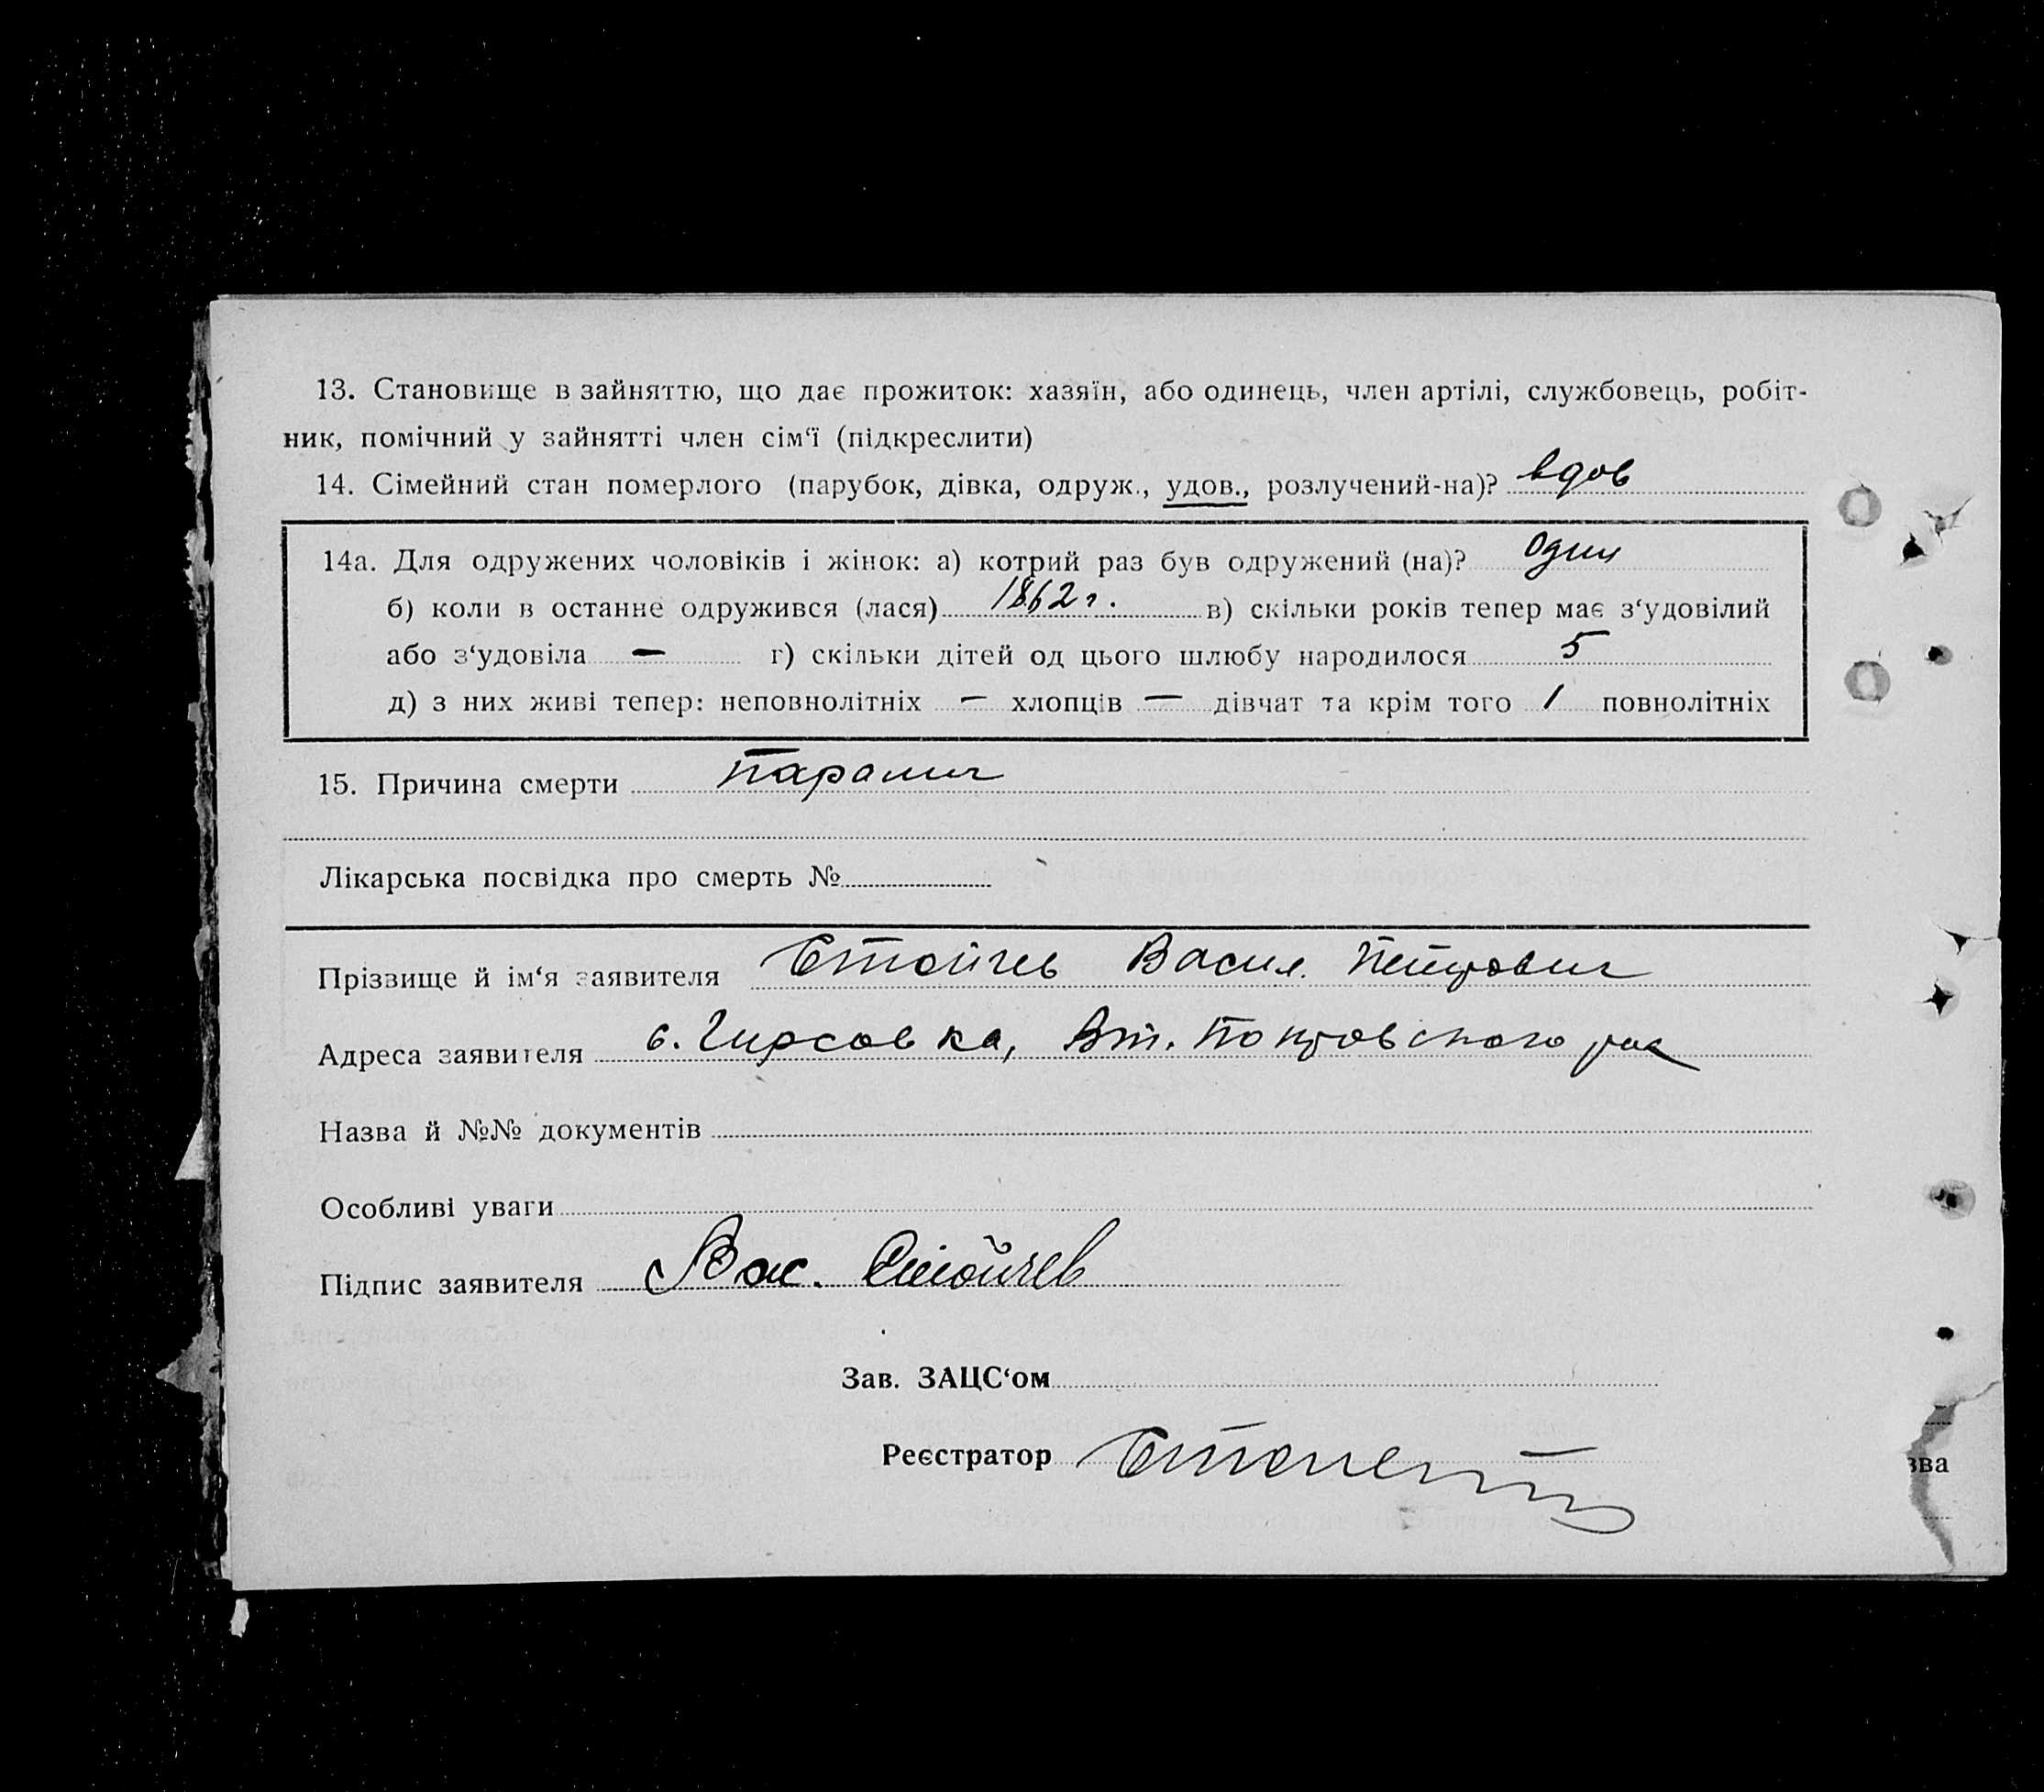 13. Становище в зайняттю, що дає прожиток: хазяїн, або одинець, член артілі, службовець, робіт-
ник, помічний у зайнятті член сім‘ї (підкреслити)
14. Сімейний стан померлого (парубок, дівка, одруж., удов., розлучений-на)? вдов
14а. Для одружених чоловіків і жінок: а) котрий раз був одружений (на)? один
б) коли в останнє одружився (лася) 1862 г. в) скільки років тепер має з‘удовілий
або з‘удовіла — г) скільки дітей од цього шлюбу народилося 5
д) з них живі тепер: неповнолітніх — хлопців — дівчат та крім того 1 повнолітніх
15. Причина смерти Паралич
Лікарська посвідка про смерть №
Прізвище й ім‘я заявителя Стойчев Васил. Петрович
Адреса заявителя с. Гирсовка, Вт. Покровского рай
Назва й №№ документів
Особливі уваги
Підпис заявителя Вас. Стойчев
Зав. ЗАЦС‘ом
Реєстратор
зва